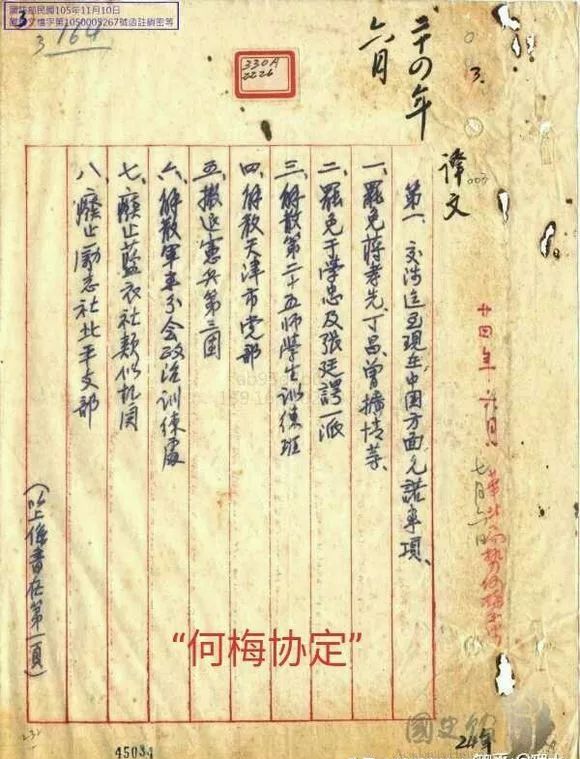 國防部民國105年11月10日
字第1050005267號函註銷密等
3
3
164
330A
2226
二十四年
六月
3.
譯文
003
第一、交涉迄至現在中国方面允諾事項、
一、罷免蔣孝先、丁昌、曾擴情等、
二、罷免于学忠及張廷諤一派
三、解散第二十五師學生訓練班
四、解散天津市党部
五、撤退憲兵第三團
六、解散軍事分会政治訓練處
七、廢止藍衣社類似机関
八、廢止勵志社北平支部
(以上係書在第一頁)
廿四年、六月
七月六日
“何梅协定”
國史館
24年
45034